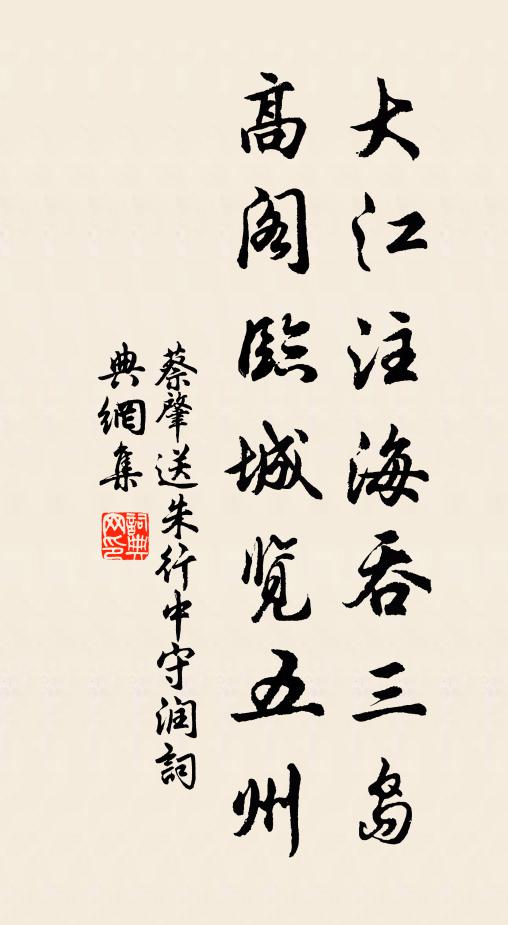 大江注海吞三岛
高阁临城览五州
蔡肇送朱行中守润詞
典網集
詞典网印